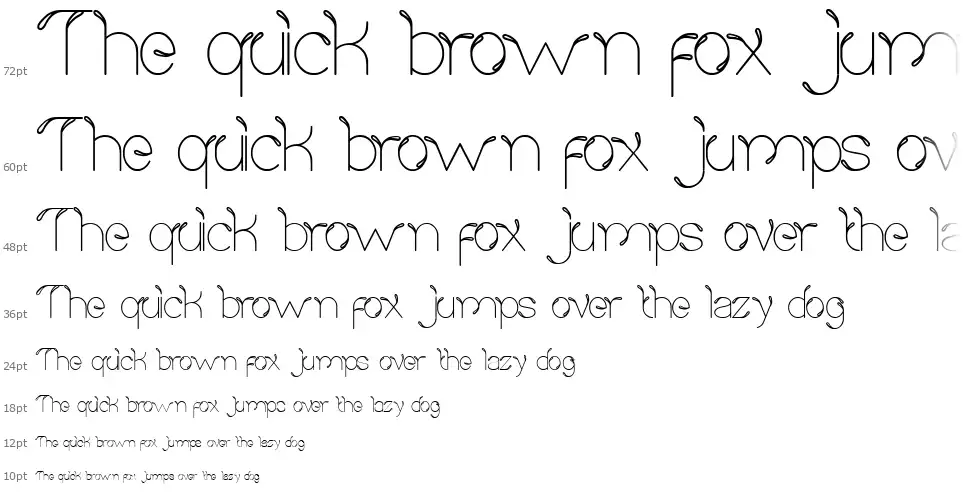 72pt The quick brown fox jum
60pt The quick brown fox jumps ov
48pt The quick brown fox jumps over the la
36pt The quick brown fox jumps over the lazy dog
24pt The quick brown fox jumps over the lazy dog
18pt The quick brown fox jumps over the lazy dog
12pt The quick brown fox jumps over the lazy dog
10pt The quick brown fox jumps over the lazy dog